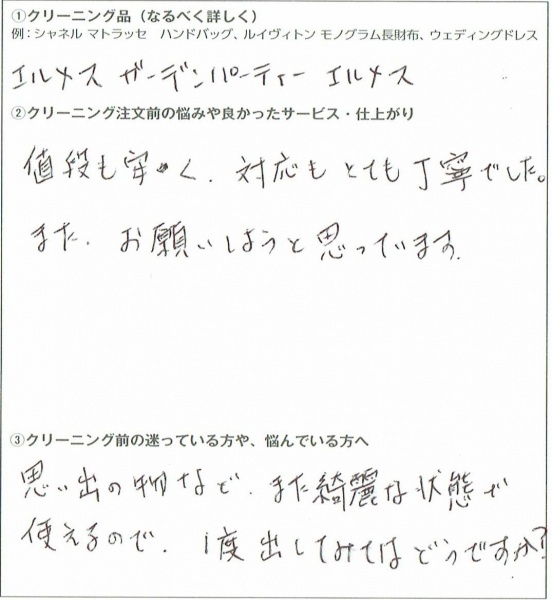 ①クリーニング品（なるべく詳しく）
例：シャネル マトラッセ　ハンドバッグ、ルイヴィトン モノグラム長財布、ウェディングドレス
エルメス ガーデンパーティー エルメス
②クリーニング注文前の悩みや良かったサービス・仕上がり
値段も安く、対応もとても丁寧でした。
また、お願いしようと思っています。
③クリーニング前の迷っている方や、悩んでいる方へ
思い出の物など、また綺麗な状態で
使えるので、1度出してみてはどうですか？